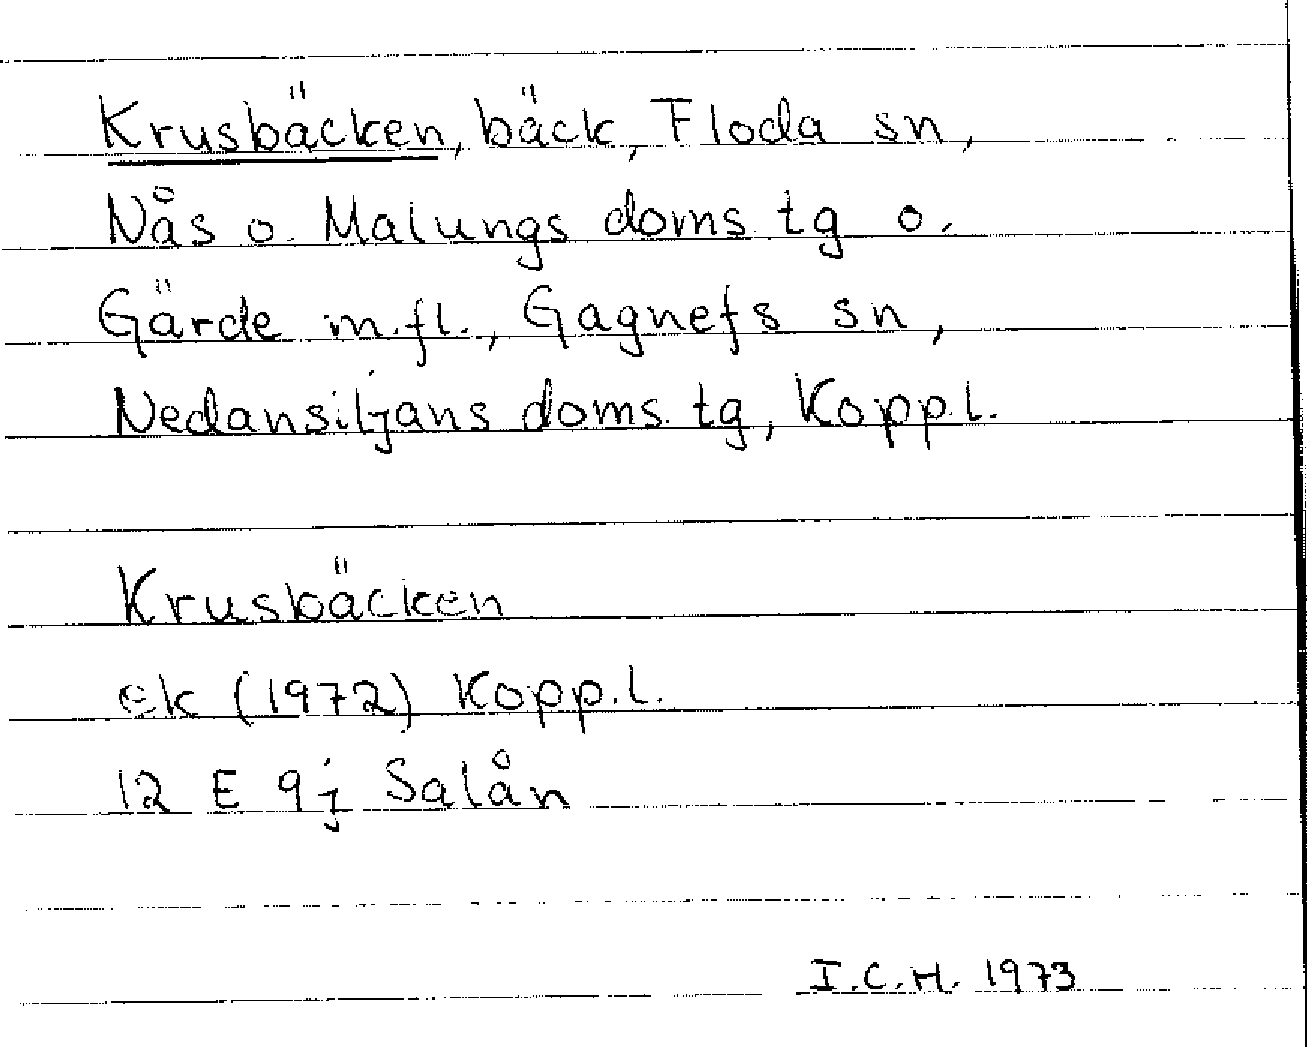 Krusbäcken, bäck, Floda sn,
Nås o. Malungs doms. tg o.
Gärde m.fl., Gagnefs sn,
Nedansiljans doms. tg, Kopp.l.
Krusbäcken
ek (1972) Kopp.l.
12 E 9j Salån
I.C.H. 1973